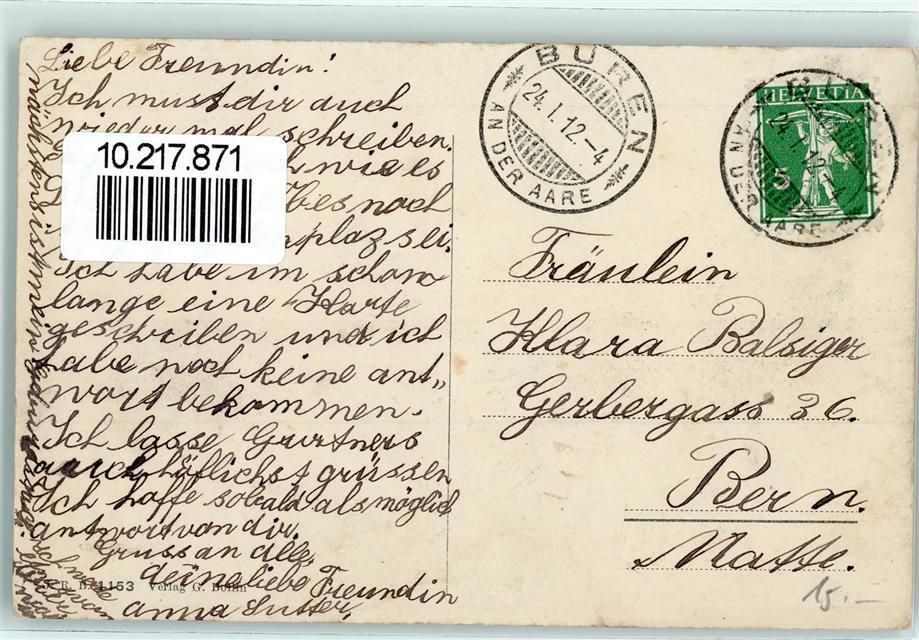 Liebe Freundin!
Ich must dir auch
wieder mal schreiben.
wie es
noch
plaz sei.
Ich habe im schom
lange eine Karte
geschrieben und ich
habe noch keine ant„
wort bekommen.
Ich lasse Gurtners
auch höflichst grüssen
Ich hoffe sobald als möglich
antwort von dir.
Gruss an alle,
deine liebe Freundin
anna Sutter,
nächstens ist mein
10.217.871
BÜREN
24.I.12.-4
AN DER AARE
HELVETIA
5
Fräulein
Klara Balsiger
Gerbergass 36.
Bern.
Matte.
R. B. 1153 Verlag G. Bohm
15.-